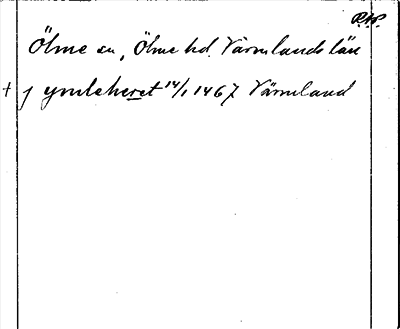 P.W.
Ölme sn, Ölme hd. Värmlands län
† j ymleheret 14/1 1467 Värmland